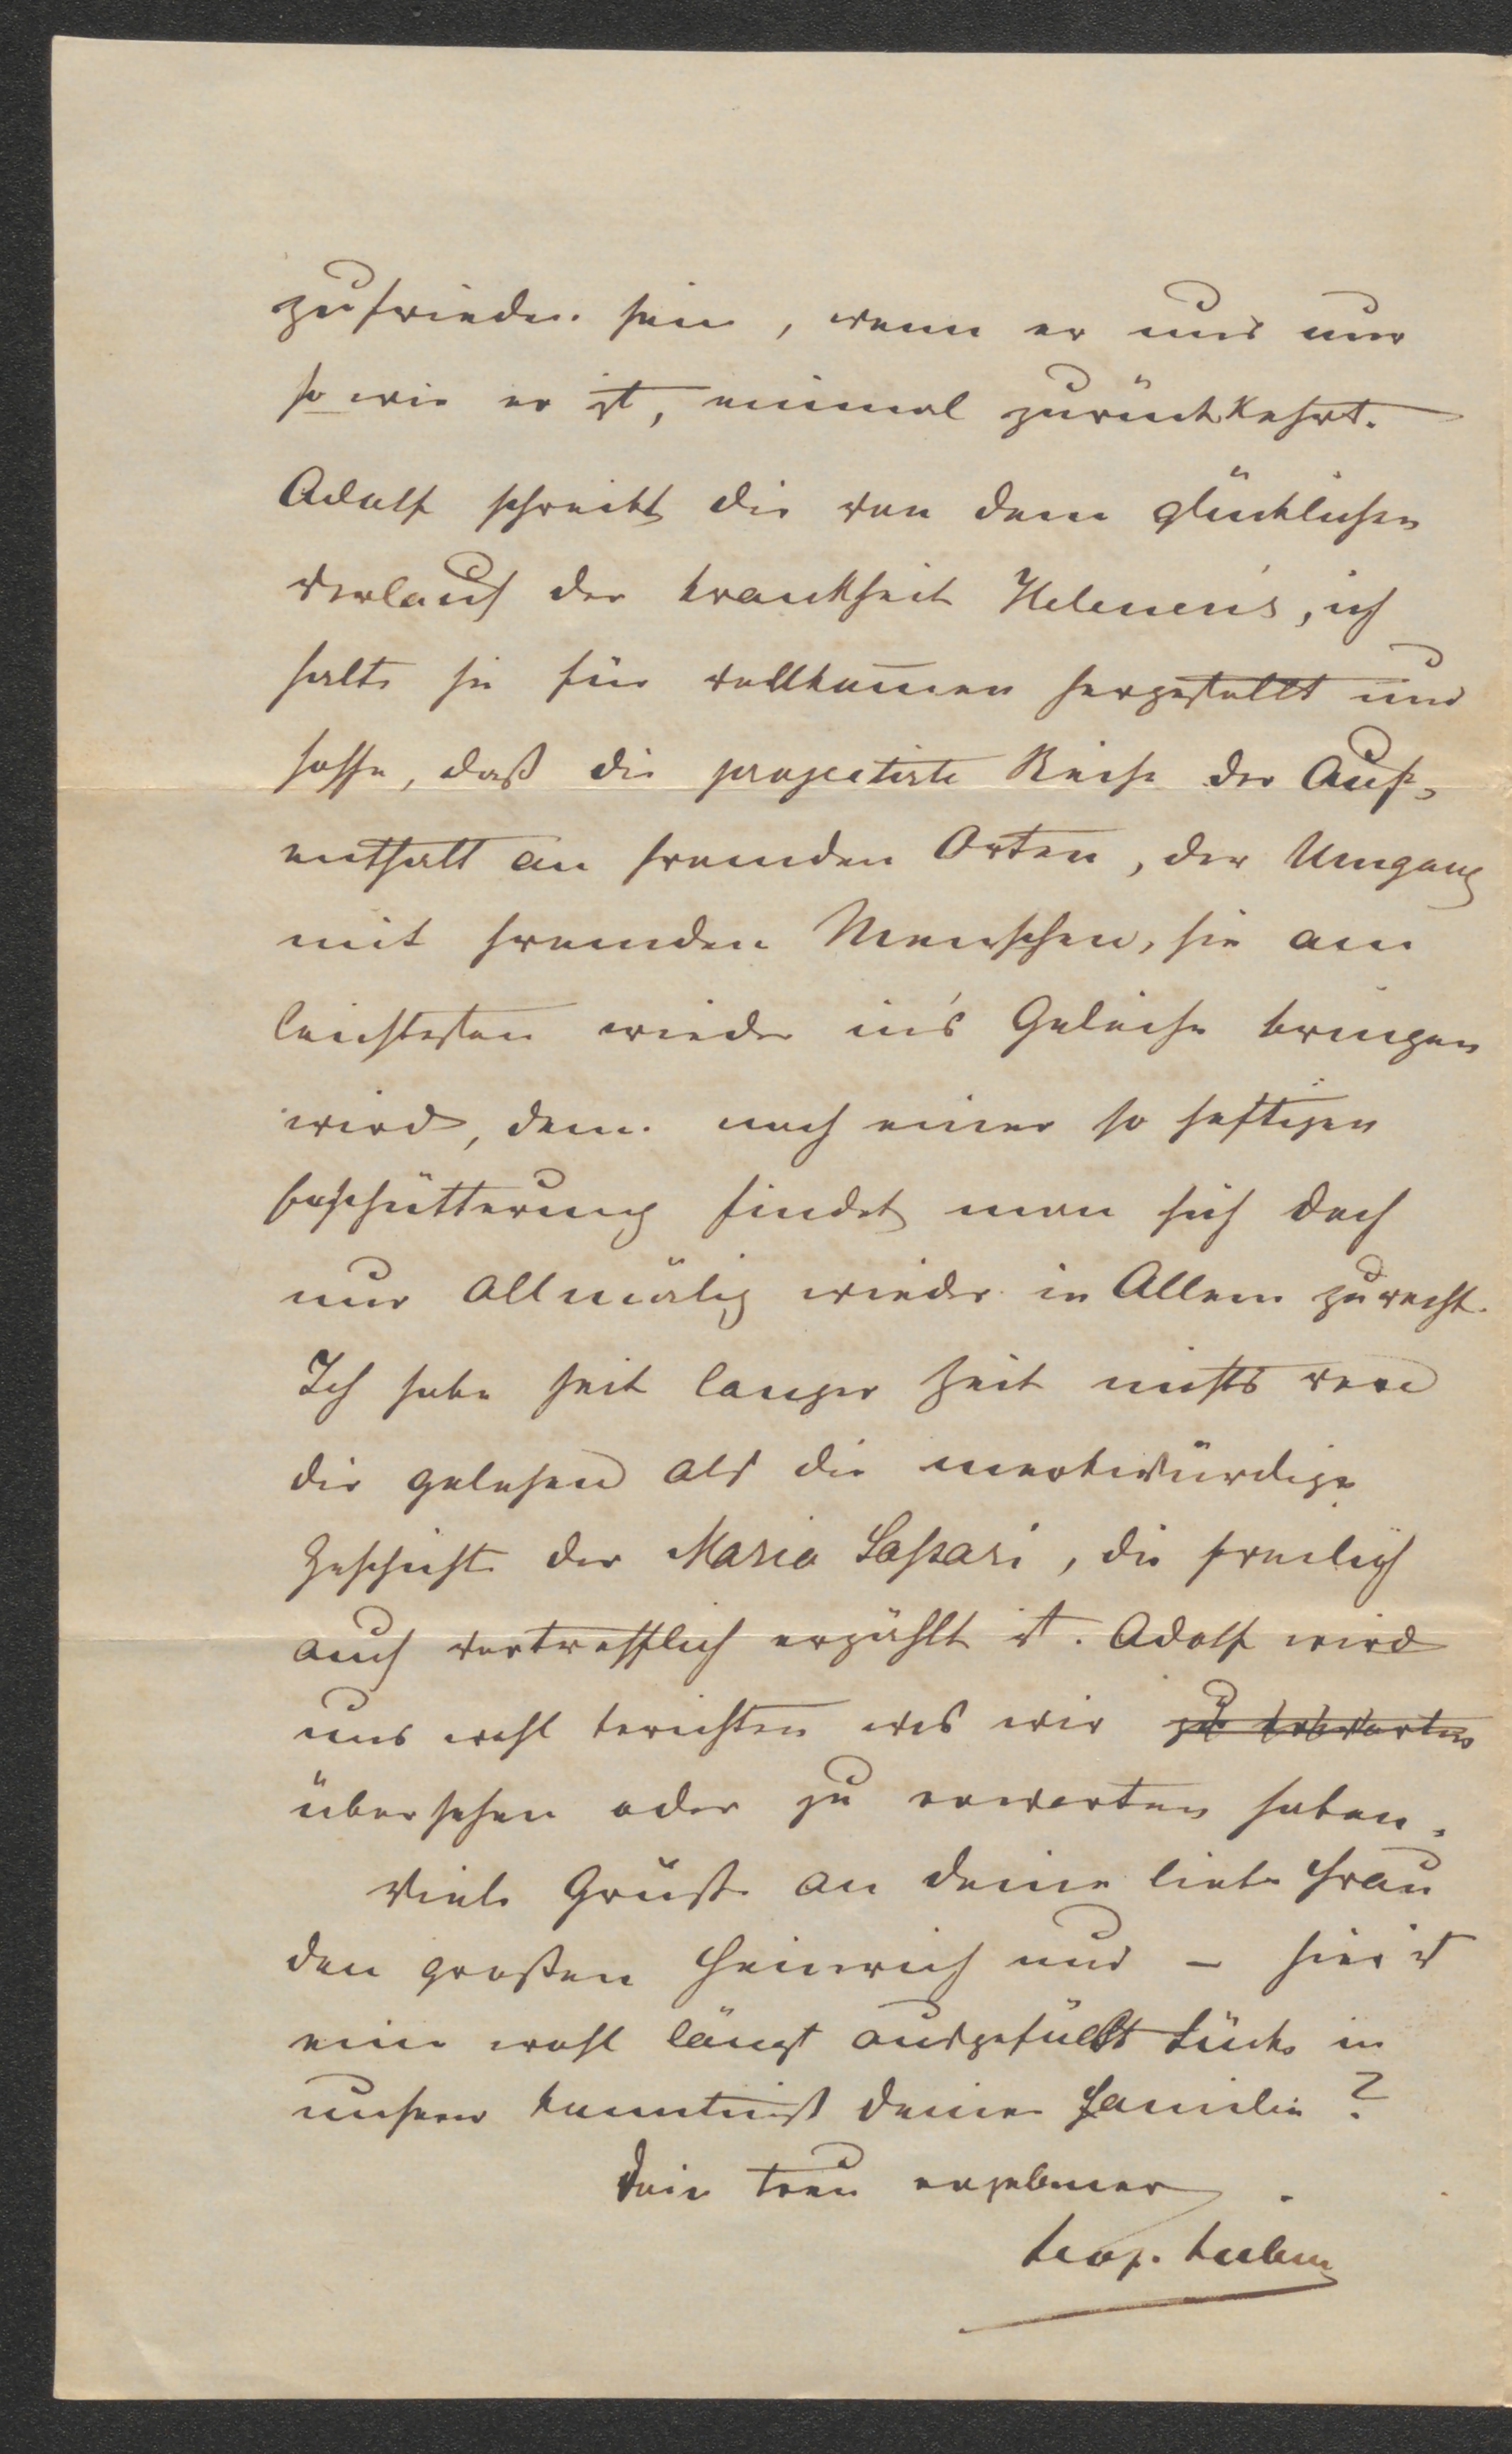 zufrieden sein, wenn er uns nur
so wie er ist, einmal zurückkehrt.
Adolf schreibt dir von dem glücklichen
Verlauf der Krankheit Helenen's, ich
halte sie für vollkom̄en hergestellt und
hoffe, daß die projectirte Reise der Auf-
enthalt an fremden Orten, der Umgang
mit fremden Menschen, sie am
leichtesten wieder in's Geleise bringen
wird, denn nach einer so heftigen
Erschütterung findet man sich doch
nur allmälig wieder in Allem zurecht.
Ich habe seit langer Zeit nichts von
dir gelesen als die merkwürdige
Geschichte der Maria, die freilich
auch vortrefflich erzählt ist. Adolf wird
uns wohl berichten was wir zu erwarten
übersehen oder zu erwarten haben.
Viele Grüße an deine liebe Frau
den großen Heinrich und – hier ist
eine wohl längst ausgefüllte Lücke in
unserer Kenntniß deiner Familie?
Dein treu ergebener
Leop.